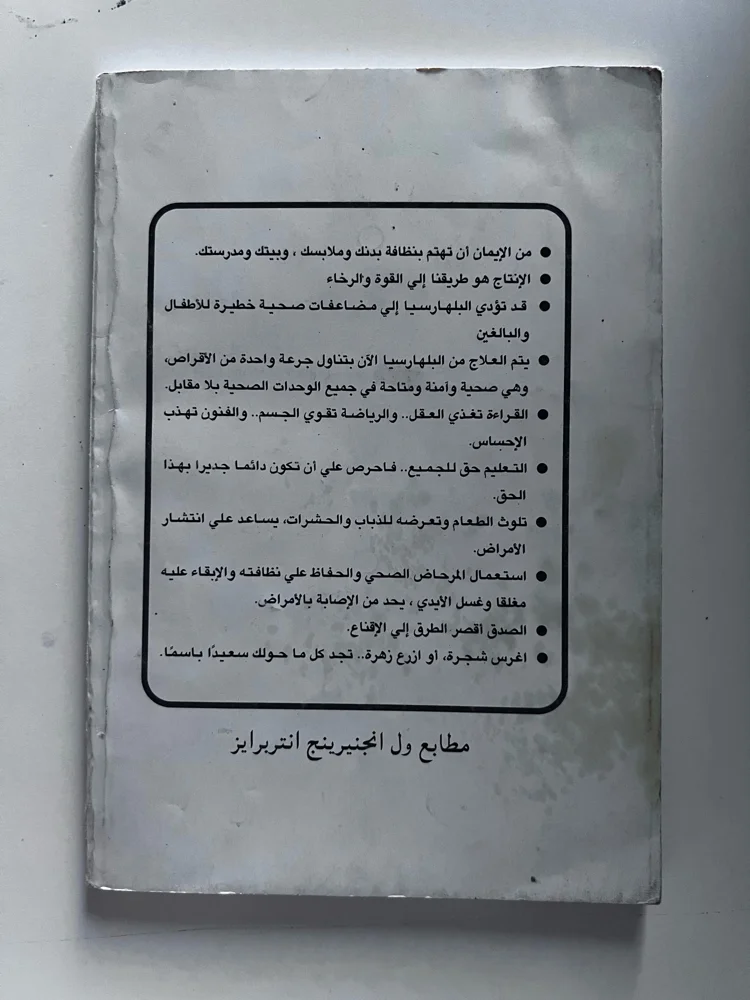 ● من الإيمان أن تهتم بنظافة بدنك وملابسك ، وبيتك ومدرستك.
● الإنتاج هو طريقنا إلي القوة والرخاء
● قد تؤدي البلهارسيا إلي مضاعفات صحية خطيرة للأطفال
والبالغين
● يتم العلاج من البلهارسيا الآن بتناول جرعة واحدة من الأقراص،
وهي صحية وآمنة ومتاحة في جميع الوحدات الصحية بلا مقابل.
● القراءة تغذي العقل.. والرياضة تقوي الجسم.. والفنون تهذب
الإحساس.
● التعليم حق للجميع.. فاحرص علي أن تكون دائما جديرا بهذا
الحق.
● تلوث الطعام وتعرضه للذباب والحشرات، يساعد علي انتشار
الأمراض.
● استعمال المرحاض الصحي والحفاظ علي نظافته والإبقاء عليه
مغلقا وغسل الأيدي ، يحد من الإصابة بالأمراض.
● الصدق أقصر الطرق إلي الإقناع.
● اغرس شجرة، أو ازرع زهرة.. تجد كل ما حولك سعيدًا باسمًا.
مطابع ول انجنيرينج انتربرايز